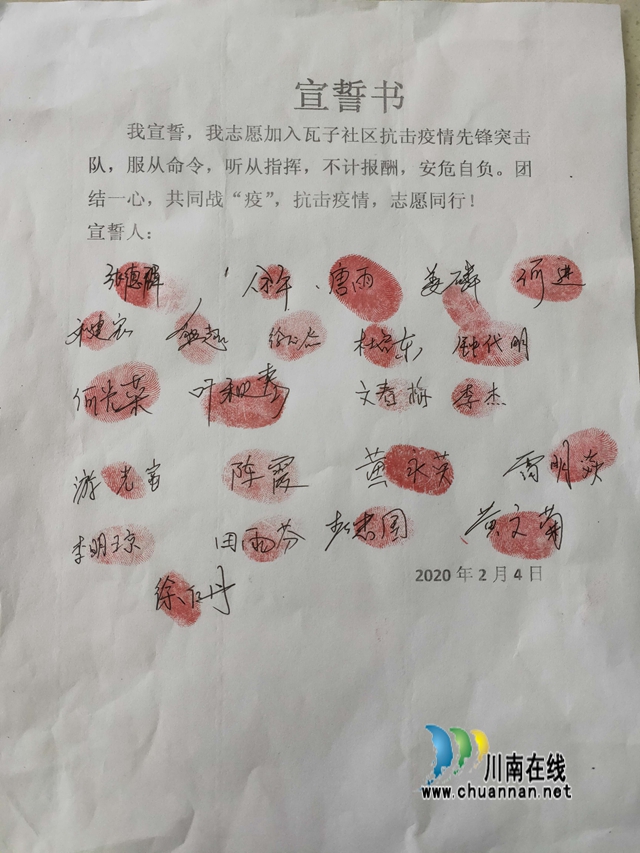 宣誓书
我宣誓，我志愿加入瓦子社区抗击疫情先锋突击
队，服从命令，听从指挥，不计报酬，安危自负。团
结一心，共同战“疫”，抗击疫情，志愿同行！
宣誓人：
张德辉 余午 唐雨 姜磷 何进
杜启东 钟代明
何光荣 叶和春 文春梅 李杰
游光富 陈霞 黄永英 雷明焱
李明琼 田雨芬 彭忠国 黄文菊
2020年2月4日
徐丹
川南在线
www.chuannan.net